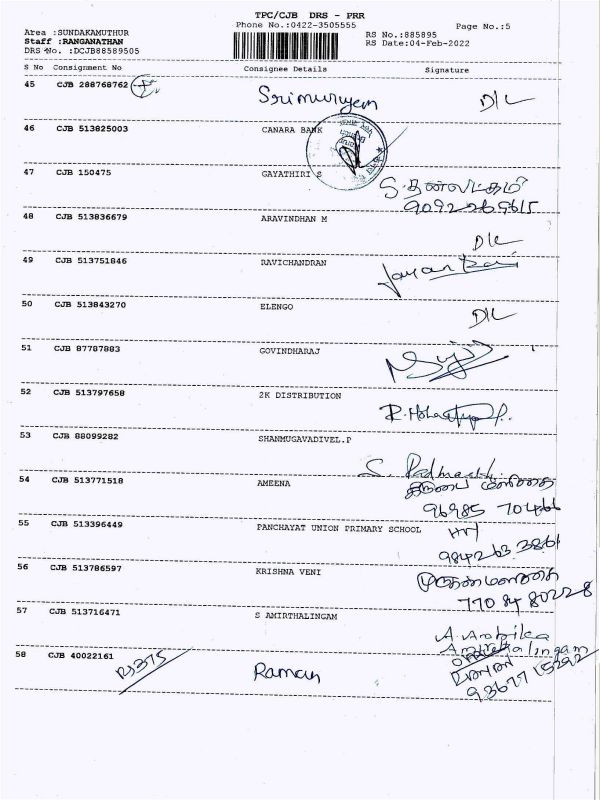 TPC/CJB DRS - PRR
Phone No.:0422-3505555
Page No.:5
Area :SUNDAKAMUTHUR
Staff :RANGANATHAN
DRS No. :DCJB88589505
RS No.:885895
RS Date:04-Feb-2022
S No Consignment No Consignee Details Signature
45 CJB 288768762 Srimurugan D/L
46 CJB 513825003 CANARA BANK
47 CJB 150475 GAYATHIRI S
48 CJB 513836679 ARAVINDHAN M D/L
49 CJB 513751846 RAVICHANDRAN
50 CJB 513843270 ELENGO D/L
51 CJB 87787883 GOVINDHARAJ
52 CJB 513797658 2K DISTRIBUTION
53 CJB 88099282 SHANMUGAVADIVEL.P
54 CJB 513771518 AMEENA
96985 70466
55 CJB 513396449 PANCHAYAT UNION PRIMARY SCHOOL HM
984263 3861
56 CJB 513786597 KRISHNA VENI
770 84 80228
57 CJB 513716471 S AMIRTHALINGAM
A. Ambika
Amirthalingam
58 CJB 40022161 Raman
93677 15292